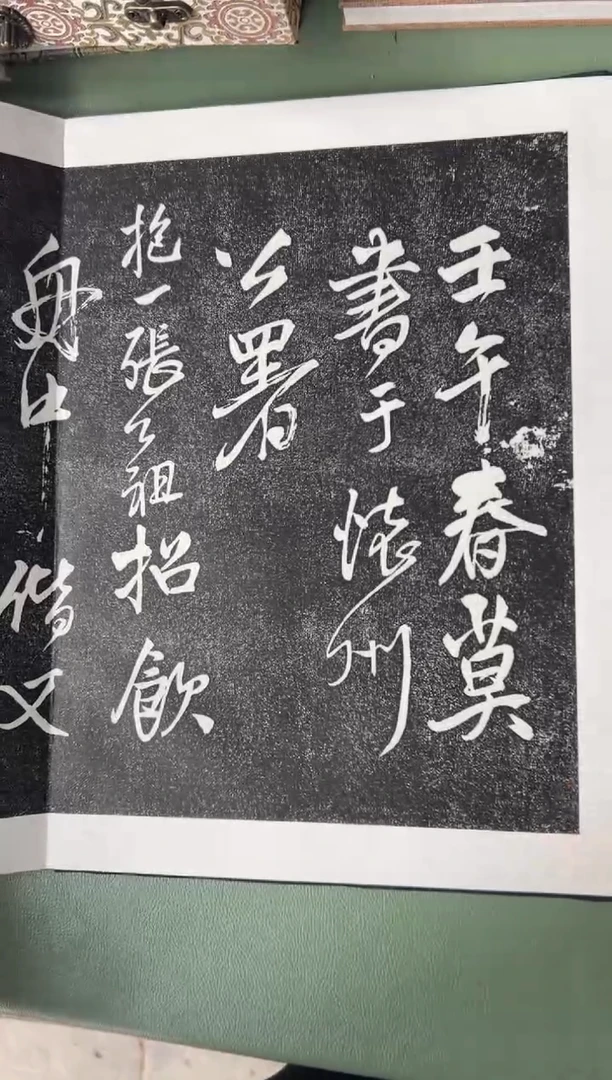 壬午春莫
書于懐州
公署
抱一張公祖招飲
舟中偕又